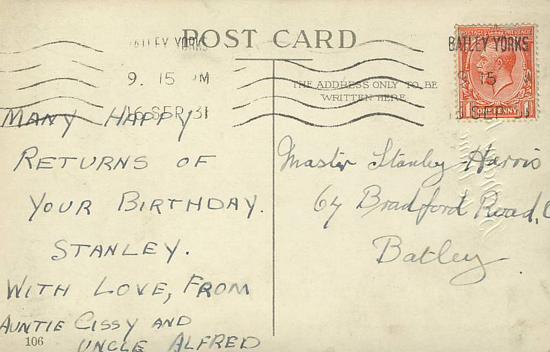 BATLEY YORKS
9. 15 PM
16 SEP 31
POST CARD
BATLEY YORKS
15
ONE PENNY
THE ADDRESS ONLY TO BE
WRITTEN HERE
MANY HAPPY
RETURNS OF
YOUR BIRTHDAY.
STANLEY.
WITH LOVE, FROM
AUNTIE CISSY AND
UNCLE ALFRED
106
Master Stanley Harris
64 Bradford Road,
Batley